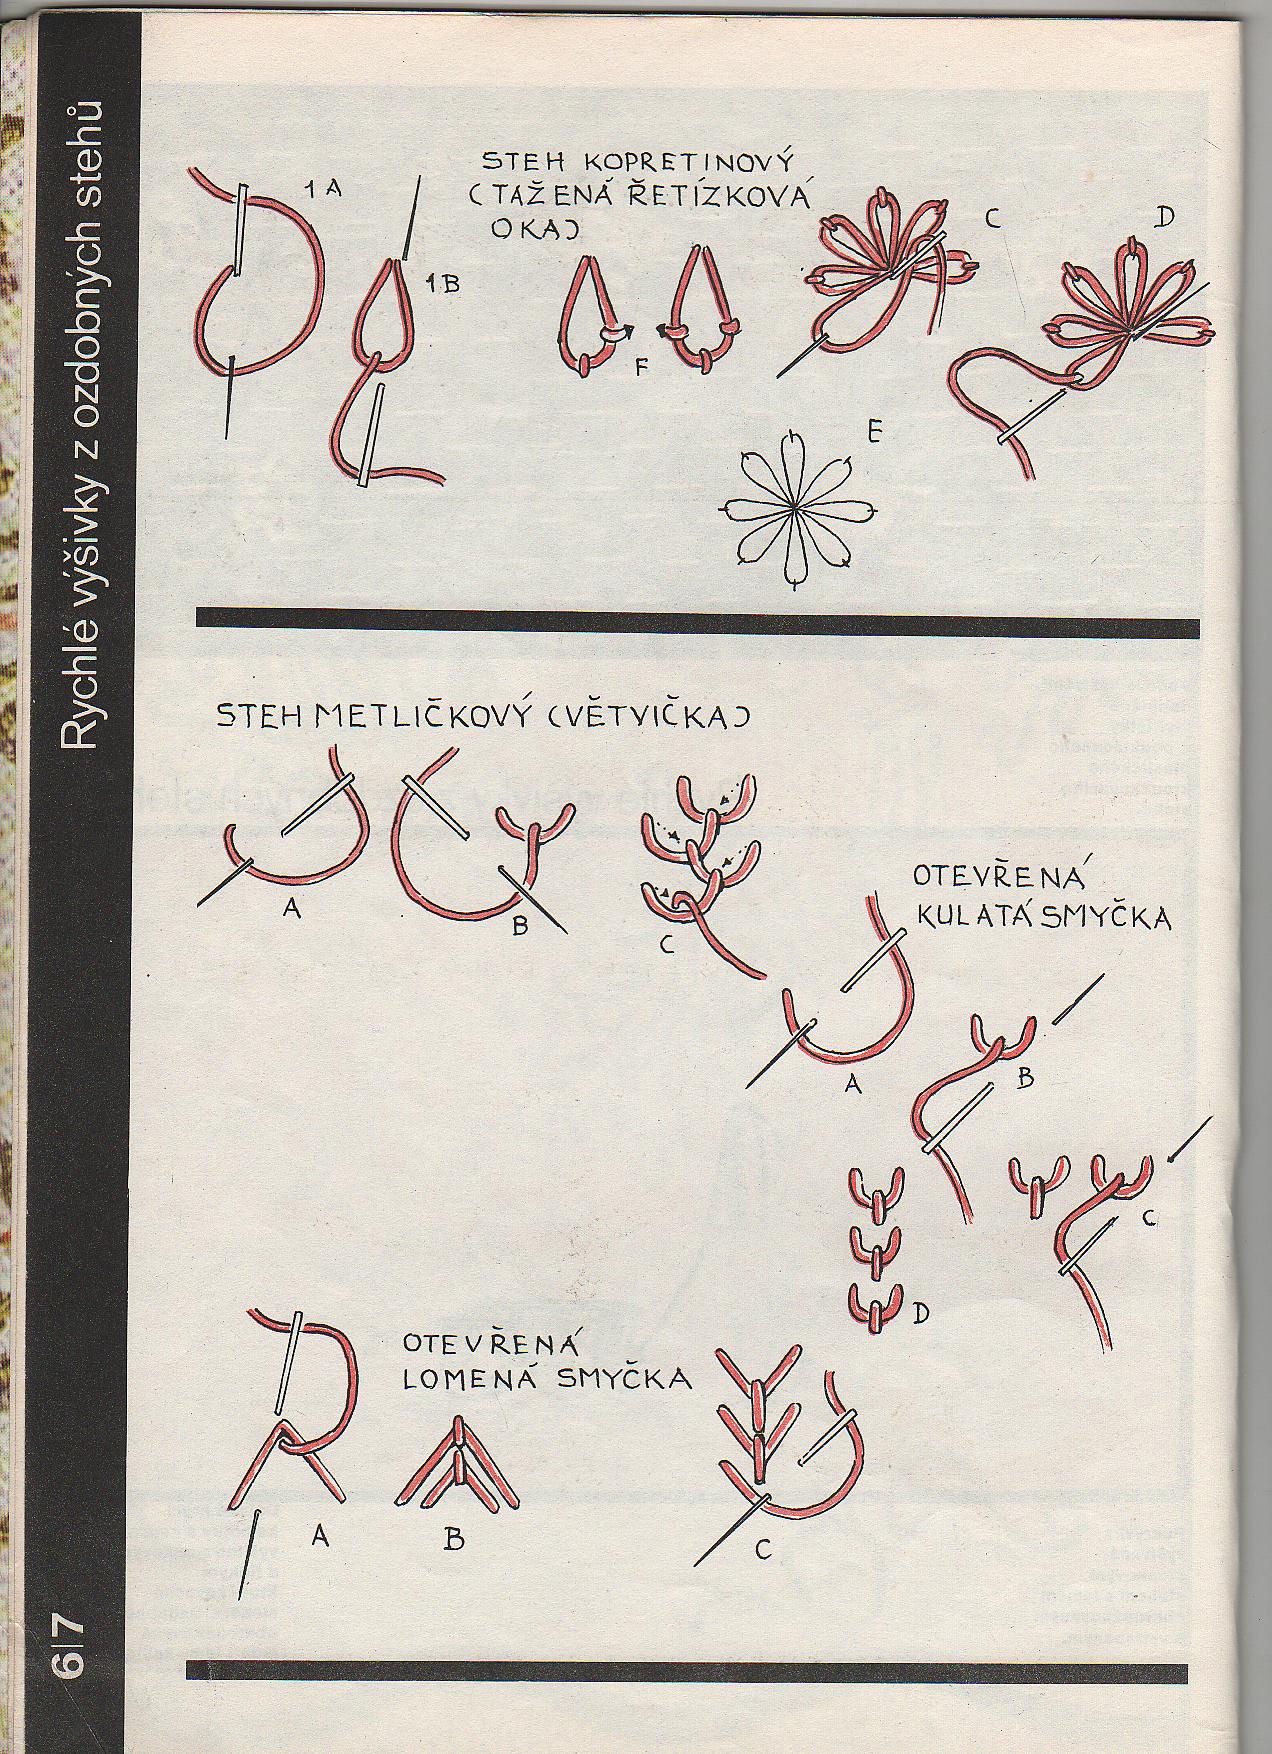 Rychlé výšivky z ozdobných stehů
6|7
STEH KOPRETINOVÝ
(TAŽENÁ ŘETÍZKOVÁ
OKA)
1A
1B
F
C
D
E
STEH METLIČKOVÝ (VĚTVIČKA)
A
B
C
OTEVŘENÁ
KULATÁ SMYČKA
A
B
C
D
OTEVŘENÁ
LOMENÁ SMYČKA
A
B
C